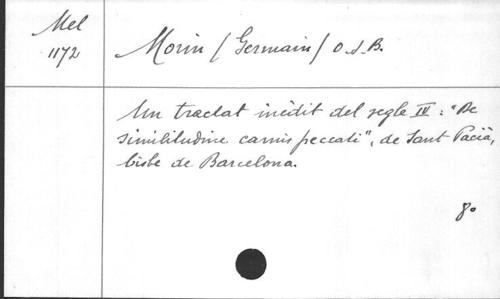 Mel
1172
Morin (Germain) O.S.B.
Un tractat inèdit del segle IV: "De
similitudine carnis peccati", de Sant Pacià,
bisbe de Barcelona.
8º